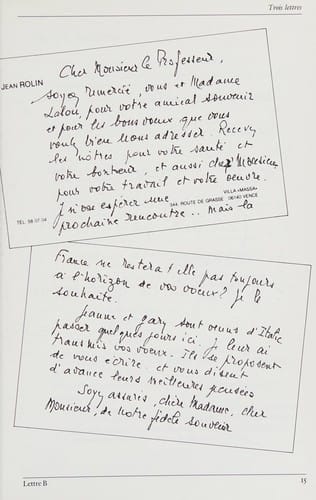 Trois lettres
Cher Monsieur le Professeur,
JEAN ROLIN
soyez remercié, vous et Madame
Lalou, pour votre amical souvenir
et pour les bons voeux que vous
voulez bien nous adresser. Recevez
les nôtres pour votre santé et
votre bonheur, et aussi cher Monsieur
pour votre travail et votre oeuvre.
J'ose espérer une
VILLA «MASSA»
344, ROUTE DE GRASSE 06140 VENCE
TÉL. 58 07 04
prochaine rencontre.. mais la
France ne restera t'elle pas toujours
à l'horizon de vos voeux? je le
souhaite.
Jeanne et Gary sont venus d'Italie
passer quelques jours ici. Je leur ai
transmis vos voeux. Ils se proposent
de vous écrire et vous disent
d'avance leurs meilleures pensées
Soyez assurés, chère Madame, cher
Monsieur, de notre fidèle souvenir
Lettre B
15